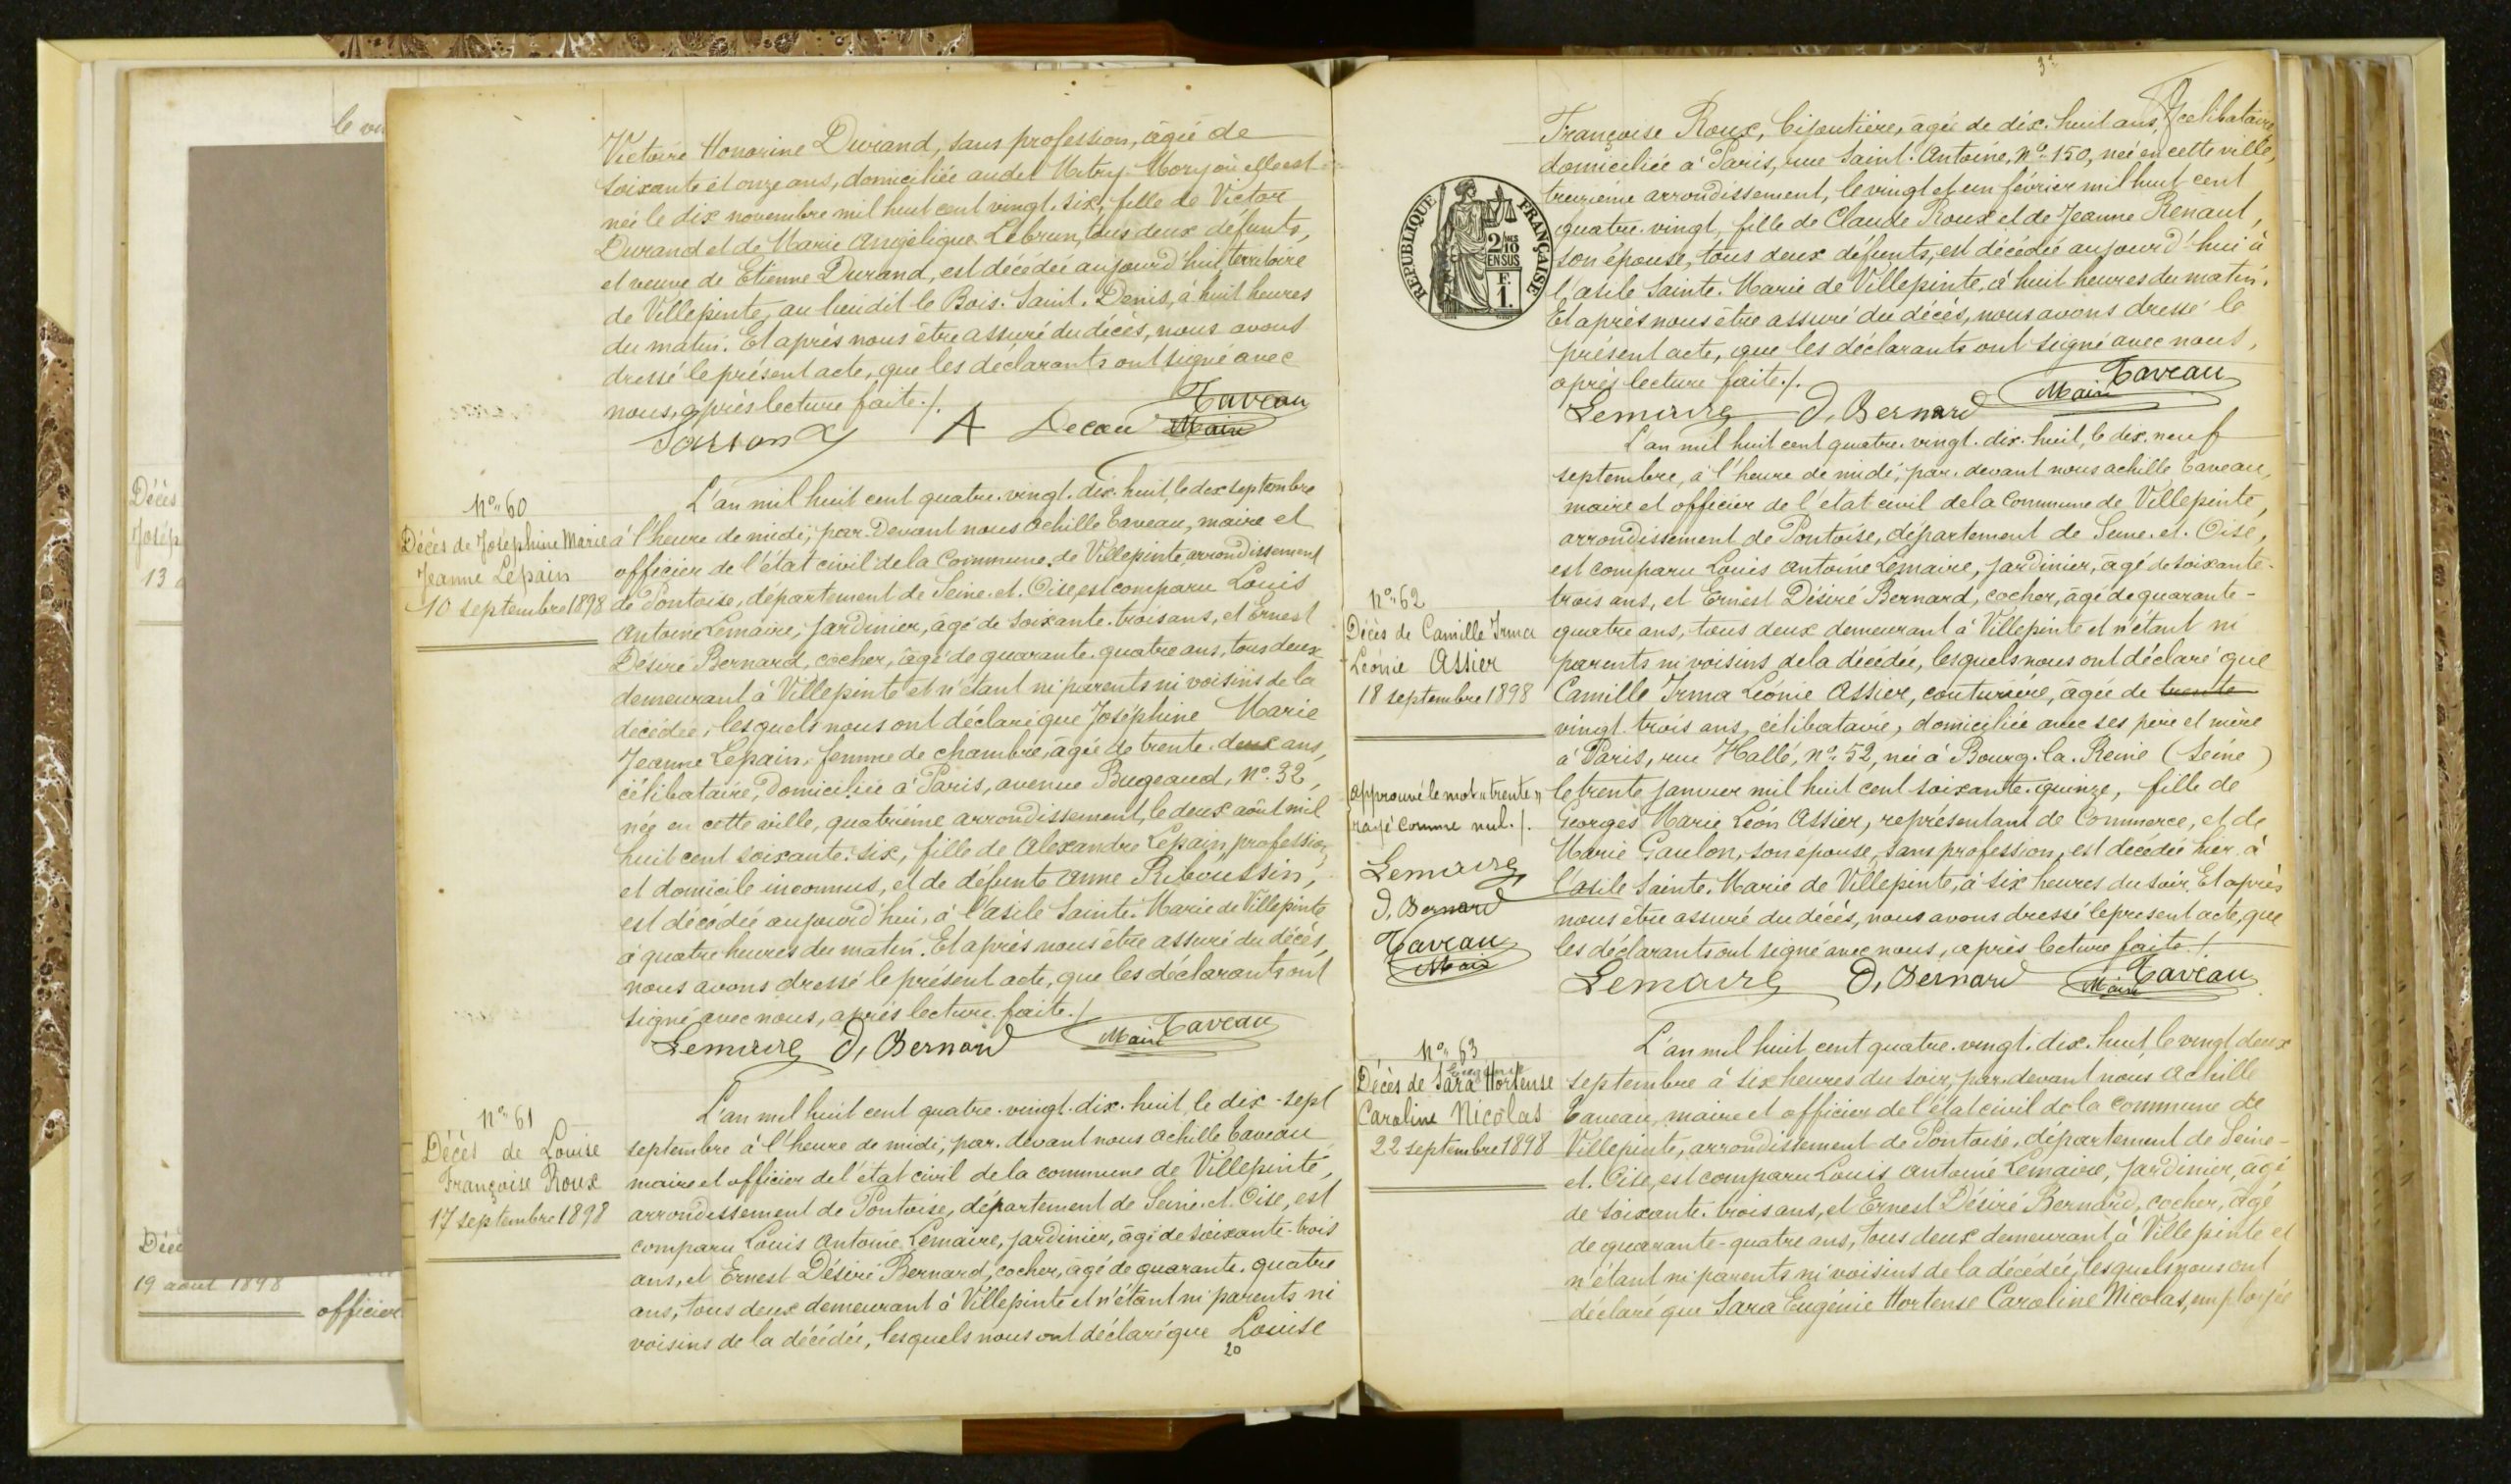 le
Décès
Josép
13 a
Déc
19 août 1898
officier
Victoire Honorine Durand, sans profession, âgée de
soixante et onze ans, domiciliée audit Mitry-Mory où elle est
née le dix novembre mil huit cent vingt-six, fille de Victor
Durand et de Marie Angélique Lebrun, tous deux défunts,
et veuve de Etienne Durand, est décédée aujourd'hui, territoire
de Villepinte, au lieudit le Bois-Saint-Denis, à huit heures
du matin. Et après nous être assuré du décès, nous avons
dressé le présent acte, que les déclarants ont signé avec
nous, après lecture faite./.
A Decau Taveau
Maire
No 60
Décès de Joséphine Marie
Jeanne Lepain
10 septembre 1898
L'an mil huit cent quatre-vingt-dix-huit, le dix septembre
à l'heure de midi, par-devant nous Achille Taveau, maire et
officier de l'état civil de la Commune de Villepinte, arrondissement
de Pontoise, département de Seine-et-Oise, est comparu Louis
Antoine Lemaire, jardinier, âgé de soixante-trois ans, et Ernest
Désiré Bernard, cocher, âgé de quarante-quatre ans, tous deux
demeurant à Villepinte et n'étant ni parents ni voisins de la
décédée, lesquels nous ont déclaré que Joséphine Marie
Jeanne Lepain, femme de chambre, âgée de trente-deux ans,
célibataire, domiciliée à Paris, avenue Bugeaud, No 32,
née en cette ville, quatrième arrondissement, le deux août mil
huit cent soixante-six, fille de Alexandre Lepain, profession
et domicile inconnus, et de défunte Anne Riboussin,
est décédée aujourd'hui, à l'asile Sainte-Marie de Villepinte
à quatre heures du matin. Et après nous être assuré du décès,
nous avons dressé le présent acte, que les déclarants ont
signé avec nous, après lecture faite./.
Lemaire D. Bernard Taveau
Maire
No 61
Décès de Louise
Françoise Roux
17 septembre 1898
L'an mil huit cent quatre-vingt-dix-huit, le dix-sept
septembre à l'heure de midi, par-devant nous Achille Taveau
maire et officier de l'état civil de la commune de Villepinte,
arrondissement de Pontoise, département de Seine-et-Oise, est
comparu Louis Antoine Lemaire, jardinier, âgé de soixante-trois
ans, et Ernest Désiré Bernard, cocher, âgé de quarante-quatre
ans, tous deux demeurant à Villepinte et n'étant ni parents ni
voisins de la décédée, lesquels nous ont déclaré que Louise
20
RÉPUBLIQUE FRANÇAISE
2/10
EN SUS
F.
1.
Françoise Roux, bijoutière, âgée de dix-huit ans, célibataire,
domiciliée à Paris, rue Saint-Antoine, No 150, née en cette ville,
treizième arrondissement, le vingt et un février mil huit cent
quatre-vingt, fille de Claude Roux et de Jeanne Renaut,
son épouse, tous deux défunts, est décédée aujourd'hui à
l'asile Sainte-Marie de Villepinte, à huit heures du matin.
Et après nous être assuré du décès, nous avons dressé le
présent acte, que les déclarants ont signé avec nous,
après lecture faite./.
Lemaire D. Bernard Taveau
Maire
No 62
Décès de Camille Irma
Léonie Assier
18 septembre 1898
L'an mil huit cent quatre-vingt-dix-huit, le dix-neuf
septembre, à l'heure de midi, par-devant nous Achille Taveau,
maire et officier de l'état civil de la Commune de Villepinte,
arrondissement de Pontoise, département de Seine-et-Oise,
est comparu Louis Antoine Lemaire, jardinier, âgé de soixante-
trois ans, et Ernest Désiré Bernard, cocher, âgé de quarante-
quatre ans, tous deux demeurant à Villepinte et n'étant ni
parents ni voisins de la décédée, lesquels nous ont déclaré que
Camille Irma Léonie Assier, couturière, âgée de trente
vingt-trois ans, célibataire, domiciliée avec ses père et mère
à Paris, rue Hallé, No 52, née à Bourg-la-Reine (Seine)
le trente janvier mil huit cent soixante-quinze, fille de
Georges Marie Léon Assier, représentant de Commerce, et de
Marie Gaulon, son épouse, sans profession, est décédée hier à
l'asile Sainte-Marie de Villepinte, à six heures du soir. Et après
nous être assuré du décès, nous avons dressé le présent acte, que
les déclarants ont signé avec nous, après lecture faite./.
Lemaire D. Bernard Taveau
Maire
approuvé le mot "trente"
rayé comme nul./.
Lemaire
D. Bernard
Taveau
Maire
No 63
Eugénie
Décès de Sara Hortense
Caroline Nicolas
22 septembre 1898
L'an mil huit cent quatre-vingt-dix-huit, le vingt-deux
septembre à six heures du soir, par-devant nous Achille
Taveau, maire et officier de l'état civil de la commune de
Villepinte, arrondissement de Pontoise, département de Seine-
et-Oise, est comparu Louis Antoine Lemaire, jardinier, âgé
de soixante-trois ans, et Ernest Désiré Bernard, cocher, âgé
de quarante-quatre ans, tous deux demeurant à Villepinte et
n'étant ni parents ni voisins de la décédée, lesquels nous ont
déclaré que Sara Eugénie Hortense Caroline Nicolas, employée